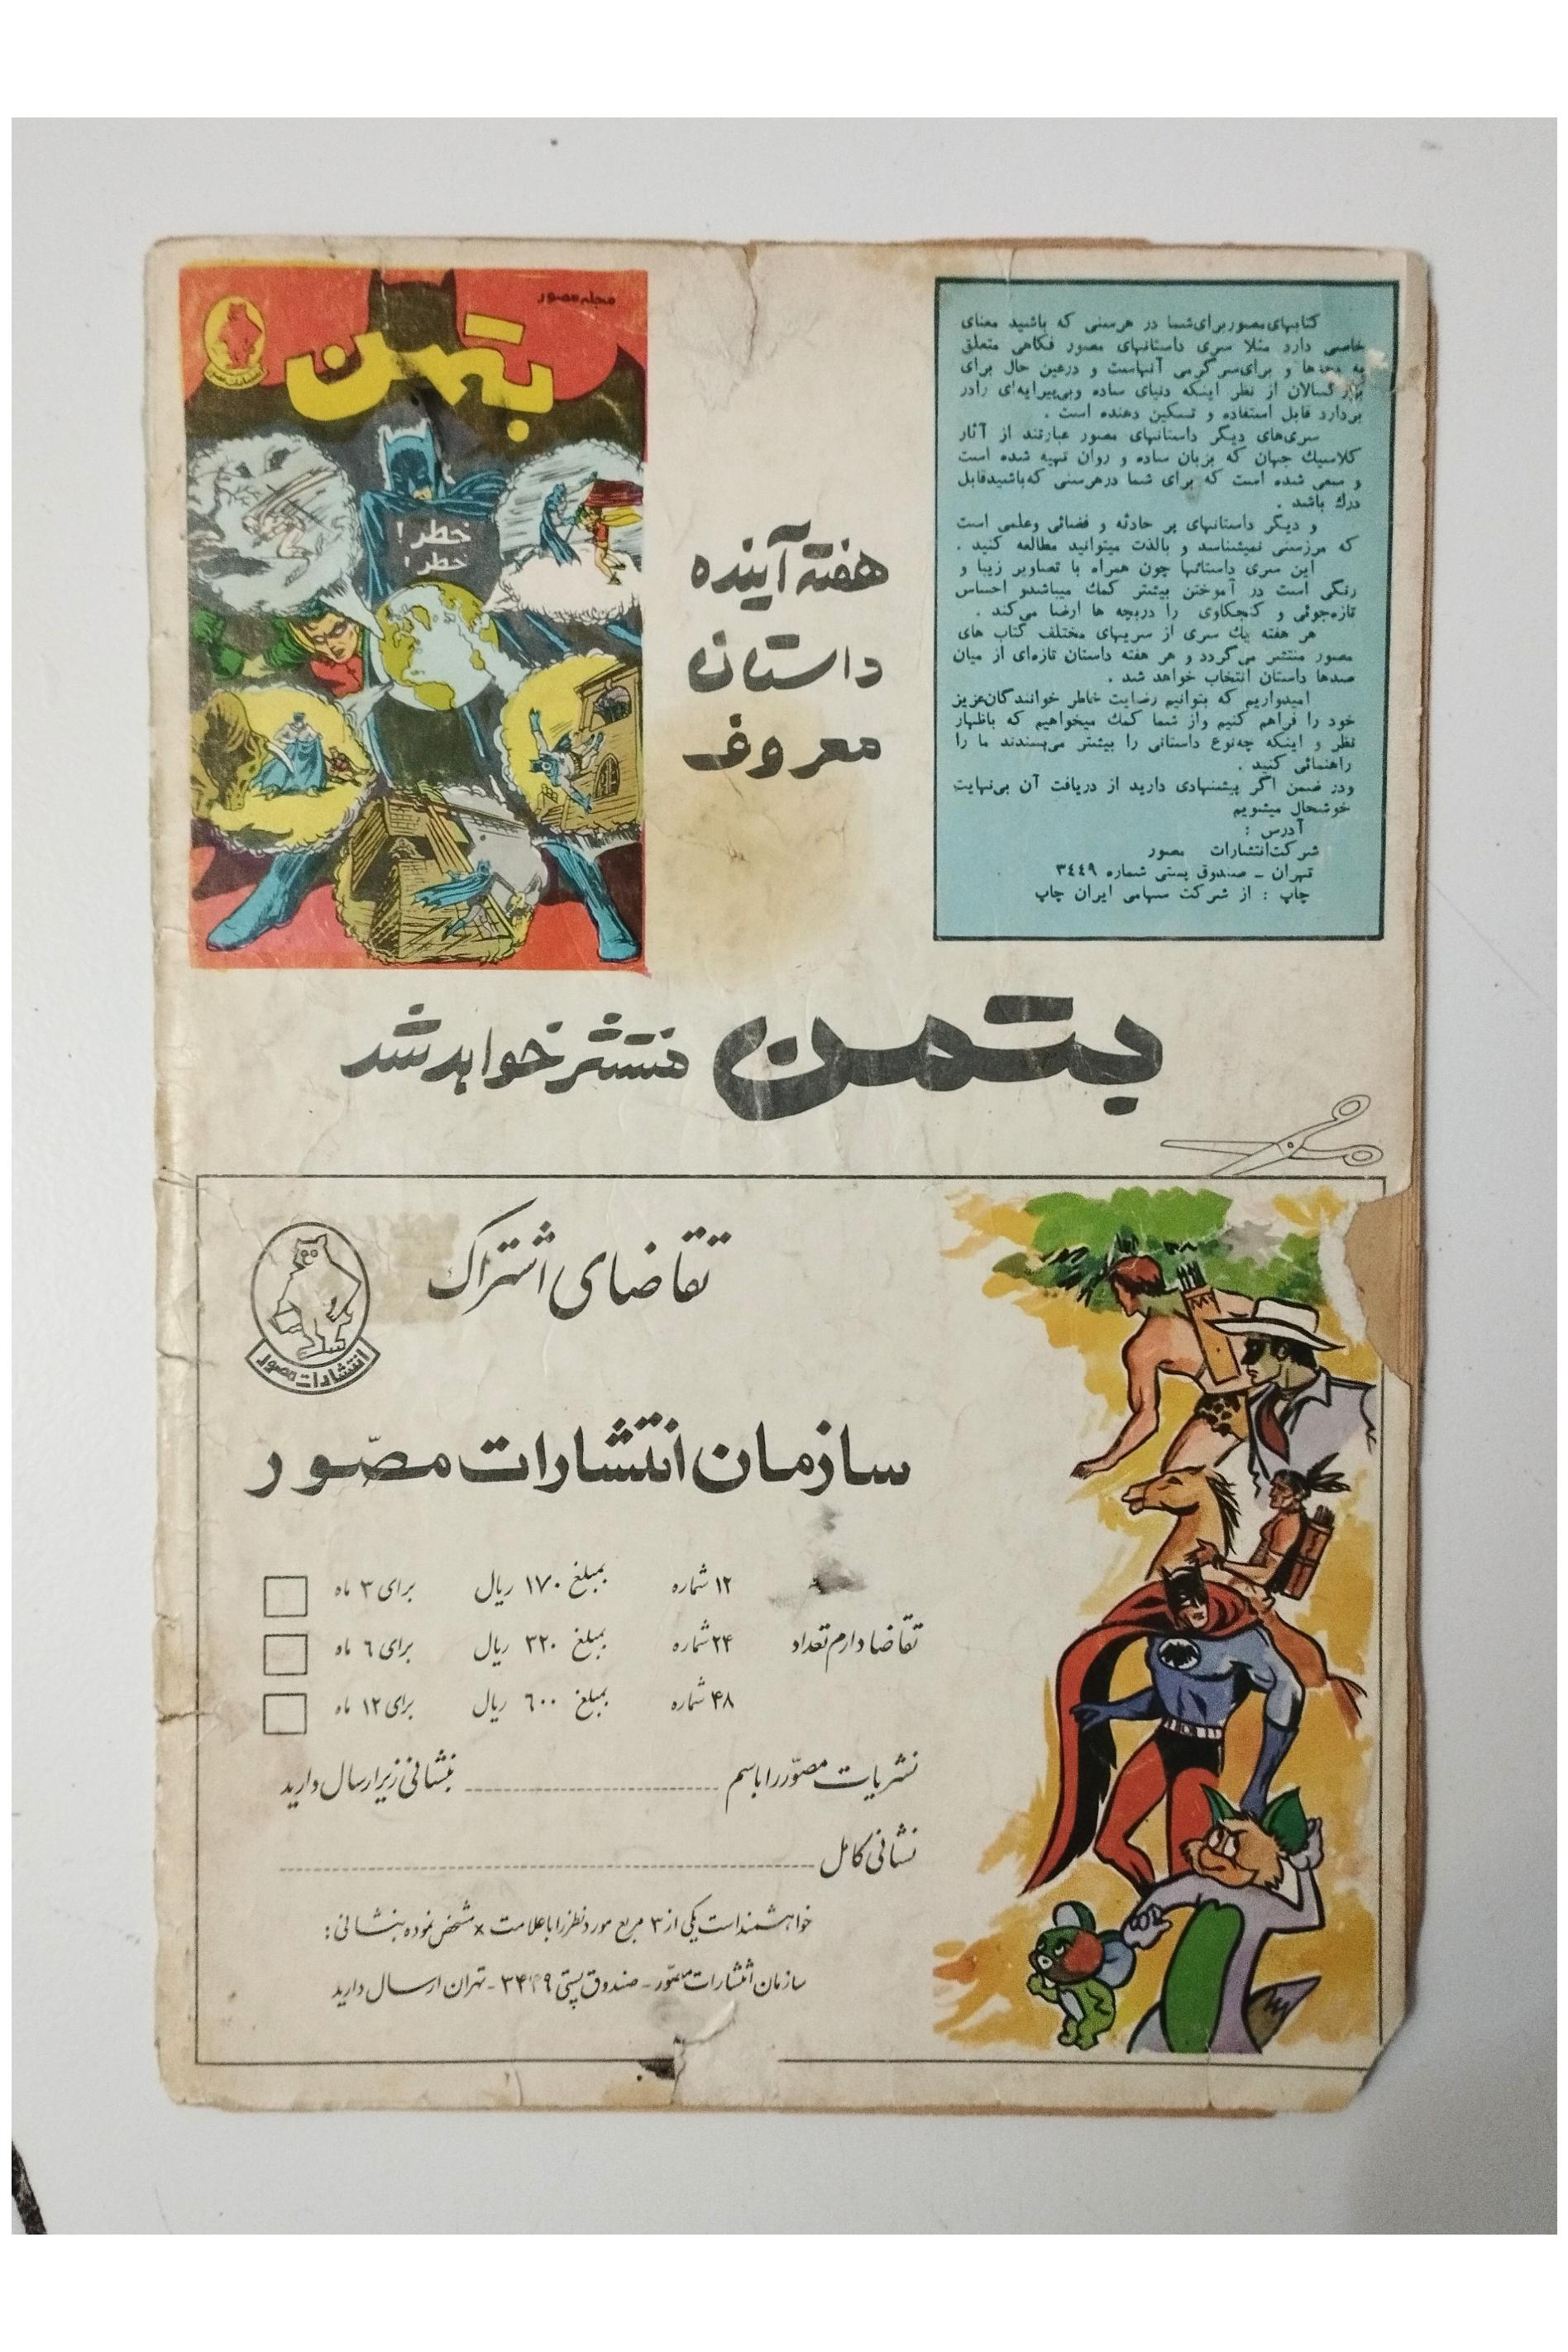 کتابهای مصور برای شما در هر سنی که باشید معنای
خاصی دارد مثلا سری داستانهای مصور فکاهی متعلق
به بچه‌ها و برای سرگرمی آنهاست و درعین حال برای
بزرگسالان از نظر اینکه دنیای ساده وبی‌پیرایه‌ای رادر
بردارد قابل استفاده و تسکین دهنده است .
سری‌های دیگر داستانهای مصور عبارتند از آثار
کلاسیک جهان که بزبان ساده و روان تهیه شده است
و سعی شده است که برای شما درهرسنی که‌باشیدقابل
درك باشد .
و دیگر داستانهای پر حادثه و فضائی وعلمی است
که مرزسنی نمیشناسد و بالذت میتوانید مطالعه کنید .
این سری داستانها چون همراه با تصاویر زیبا و
رنگی است در آموختن بیشتر کمك میباشدو احساس
تازه‌جوئی و کنجکاوی را دربچه ها ارضا می‌کند .
هر هفته یك سری از سریهای مختلف کتاب های
مصور منتشر می‌گردد و هر هفته داستان تازه‌ای از میان
صدها داستان انتخاب خواهد شد .
امیدواریم که بتوانیم رضایت خاطر خوانندگان‌عزیز
خود را فراهم کنیم واز شما کمك میخواهیم که باظهار
نظر و اینکه چه‌نوع داستانی را بیشتر می‌پسندند ما را
راهنمائی کنید .
ودر ضمن اگر پیشنهادی دارید از دریافت آن بی‌نهایت
خوشحال میشویم
آدرس :
شرکت‌انتشارات مصور
تهران – صندوق پستی شماره ۳۴۴۹
چاپ : از شرکت سهامی ایران چاپ
هفته آینده
داستان
معروف
مجله مصور
بتمن
خطر !
خطر !
بتمن منتشر خواهد شد
تقاضای اشتراک
انتشارات مصور
سازمان انتشارات مصّور
۱۲ شماره بمبلغ ۱۷۰ ریال برای ۳ ماه
تقاضا دارم تعداد ۲۴ شماره بمبلغ ۳۲۰ ریال برای ٦ ماه
۴۸ شماره بمبلغ ٦۰۰ ریال برای ۱۲ ماه
نشریات مصّور را باسم بنشانی زیر ارسال دارید
نشانی کامل
خواهشمند است یکی از ۳ مربع مورد نظر را با علامت × مشخص نموده بنشانی :
سازمان انتشارات مصّور - صندوق پستی ۳۴۴۹ - تهران ارسال دارید